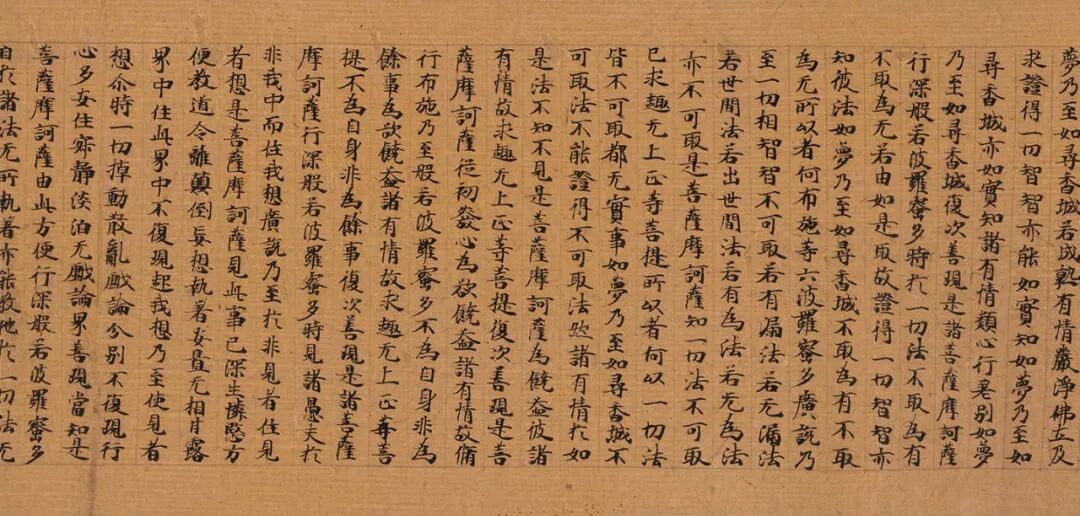 夢乃至如尋香城若成熟有情嚴淨佛土及
求證得一切智智亦能如實知如夢乃至如
尋香城亦如實知諸有情類心行差別如夢
乃至如尋香城復次善現是諸菩薩摩訶薩
行深般若波羅蜜多時於一切法不取為有
不取為无若由如是取故證得一切智智亦
知彼法如夢乃至如尋香城不取為有不取
為无所以者何布施等六波羅蜜多廣說乃
至一切相智智不可取若有漏法若无漏法
若世間法若出世間法若有為法若无為法
亦不可取是菩薩摩訶薩知一切法不可取
已求趣无上正等菩提所以者何以一切法
皆不可取都无實事如夢乃至如尋香城不
可取法不能證得不可取法然諸有情於如
是法不知不見是菩薩摩訶薩為饒益彼諸
有情故求趣无上正等菩提復次善現是菩
薩摩訶薩從初發心為欲饒益諸有情故脩
行布施乃至般若波羅蜜多不為自身非為
餘事為欲饒益諸有情故求趣无上正等菩
提不為自身非為餘事復次善現是諸菩薩
摩訶薩行深般若波羅蜜多時見諸愚夫於
非我中而住我想廣說乃至於非見者住見
者想是菩薩摩訶薩見此事已深生憐愍方
便教道令離顛倒妄想執著安置无相甘露
界中住此界中不復現起我想乃至使見者
想尒時一切掉動散亂戲論分別不復現行
心多安住寂靜淡泊无戲論界善現當知是
菩薩摩訶薩由此方便行深般若波羅蜜多
自於諸法无所執著亦能教他於一切法无